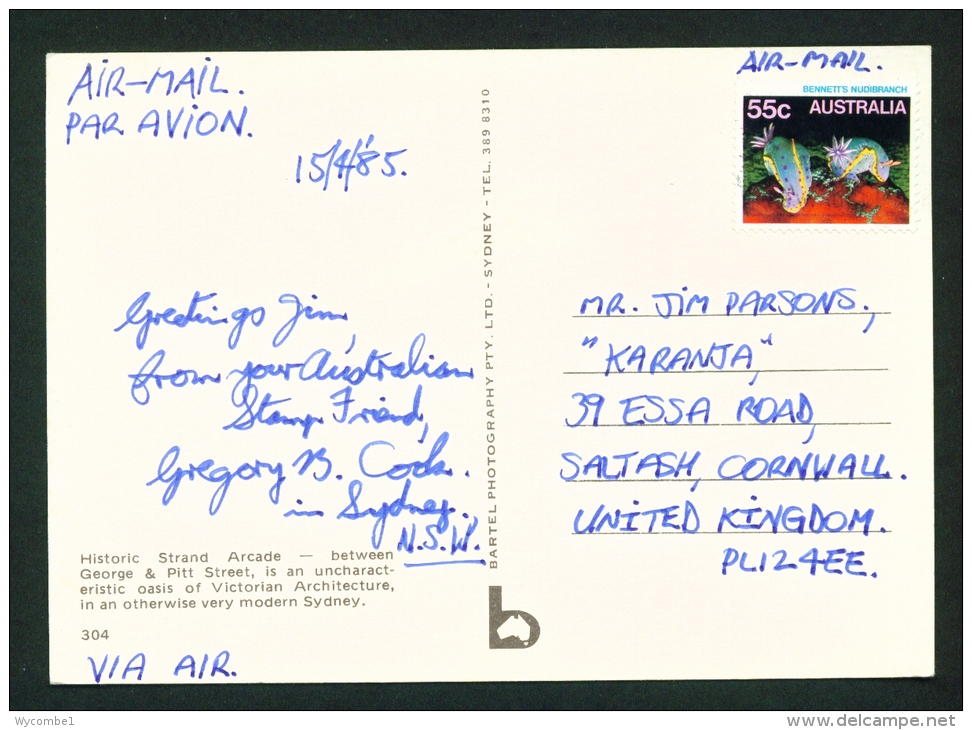 AIR-MAIL.
PAR AVION.
15/4/85.
Greetings Jim,
from your Australian
Stamp Friend,
Gregory B. Cook.
in Sydney.
N.S.W.
Historic Strand Arcade — between
George & Pitt Street, is an uncharact-
eristic oasis of Victorian Architecture,
in an otherwise very modern Sydney.
304
VIA AIR.
BARTEL PHOTOGRAPHY PTY. LTD. - SYDNEY - TEL. 389 8310
b
AIR-MAIL.
BENNETT'S NUDIBRANCH
55c AUSTRALIA
MR. JIM PARSONS,
"KARANJA",
39 ESSA ROAD,
SALTASH, CORNWALL.
UNITED KINGDOM.
PL12 4EE.
Wycombe1
www.delcampe.net